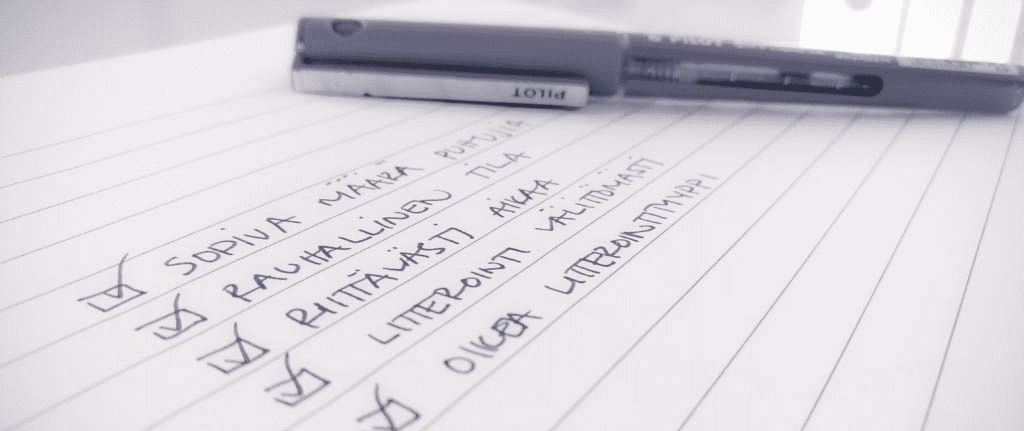 PILOT
PILOT
SOPIVA MÄÄRÄ PUHUJIA
RAUHALLINEN TILA
RIITTÄVÄSTI AIKAA
LITTEROINTI VÄLITTÖMÄSTI
OIKEA LITTEROINTITYYPPI